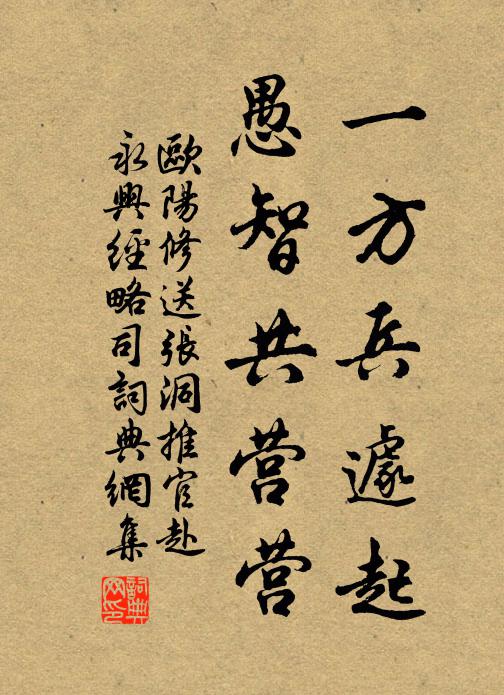 一方兵遽起
愚智共营营
歐陽修送張洞推官赴
永興經略司詞典網集
詞典
网印